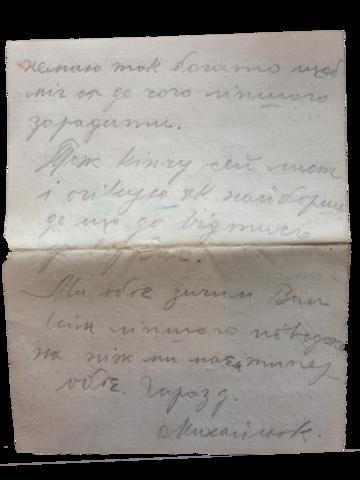 немаю так богато щоб
міг ся де чого ліпшого
зарадити.
Тож кінчу сей лист
і очікую як найборше
де що до відпись
від Вас.
Ми обоє зичим Вам
всім ліпшого поводже
ня ніж ми маєм тупер
обоє. Гаразд.
Михайлюк.